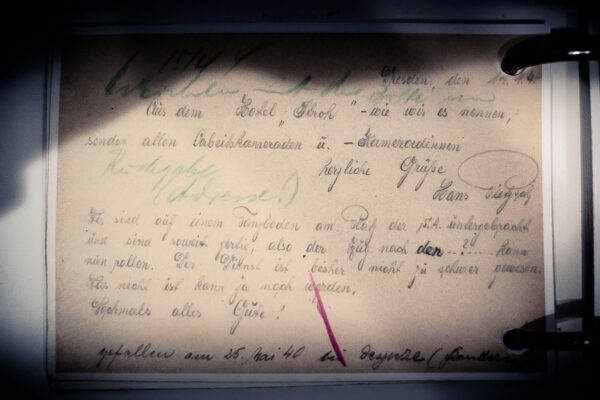 15/4 4
erhalten, mit der Bitte um
Dresden, den 10.4.40
Aus dem Hotel "Stroh" - wie wir es nennen,
sendet allen Arbeitskameraden u. -Kameradinnen
Rückgabe herzliche Grüße
(Adresse!) Hans
Wir sind auf einem Tanzboden am der S.A. untergebracht
und sind soweit fertig, also der Zug nach den ...?... kann
nun rollen. Der Dienst ist bisher nicht zu schwer gewesen.
Was nicht ist kann ja noch werden.
Nochmals alles Gute!
gefallen am 25. Mai 40 bei Deynze (Flandern